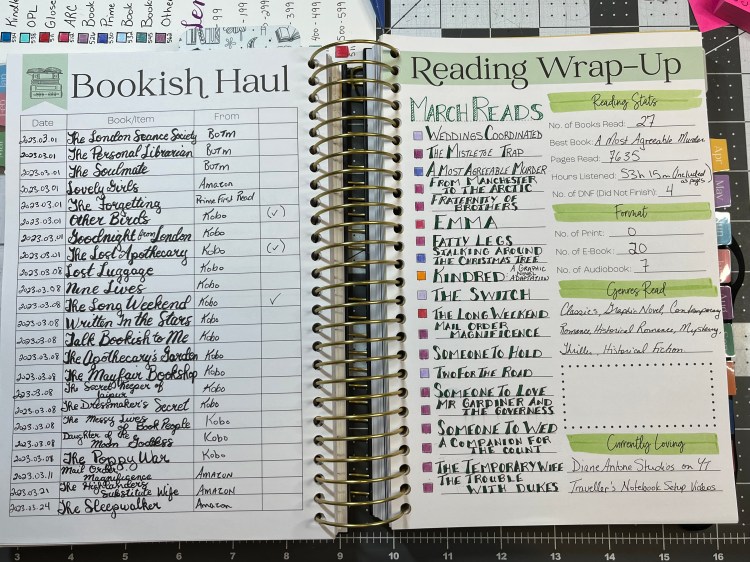 Kindle
OPL
Glose
ARC
Book
Prime
Book
Books
Other
-99
-199
-399
400-499
500-599
Bookish Haul
Date Book/Item From
2023.03.01 The London Seance Society BOTM
2023.03.01 The Personal Librarian BOTM
2023.03.01 The Soulmate BOTM
2023.03.01 Lovely Girls Amazon
2023.03.01 The Forgetting Prime First Read
2023.03.01 Other Birds Kobo (✓)
2023.03.01 Goodnight from London Kobo
2023.03.01 The Lost Apothecary Kobo (✓)
2023.03.08 Lost Luggage Kobo
2023.03.08 Nine Lives Kobo
2023.03.08 The Long Weekend Kobo ✓
2023.03.08 Written In the Stars Kobo
2023.03.08 Talk Bookish to Me Kobo
2023.03.08 The Apothecary's Garden Kobo
2023.03.08 The Mayfair Bookshop Kobo
2023.03.08 The Secret Keeper of Jaipur Kobo
2023.03.08 The Dressmaker's Secret Kobo
2023.03.08 The Messy Lives of Book People Kobo
2023.03.08 Daughter of the Moon Goddess Kobo
2023.03.08 The Poppy War Kobo
2023.03.11 Mail Order Magnificence Amazon
2023.03.21 The Highlander's Substitute Wife Amazon
2023.03.24 The Sleepwalker Amazon
Reading Wrap-Up
March Reads
Weddings Coordinated
The Mistletoe Trap
A Most Agreeable Murder
From Manchester
to the Arctic
Fraternity of
Brothers
Emma
Fatty Legs
Stalking Around
the Christmas Tree
Kindred A Graphic Novel Adaptation
The Switch
The Long Weekend
Mail Order
Magnificence
Someone To Hold
Two For The Road
Someone To Love
Mr Gardiner and
the Governess
Someone To Wed
A Companion for
the Count
The Temporary Wife
The Trouble
with Dukes
Reading Stats
No. of Books Read: 27
Best Book: A Most Agreeable Murder
Pages Read: 7635
Hours Listened: 53h 15m (included as pages)
No. of DNF (Did Not Finish): 4
Format
No. of Print: 0
No. of E-Book: 20
No. of Audiobook: 7
Genres Read
Classics, Graphic Novel, Contemporary
Romance, Historical Romance, Mystery,
Thriller, Historical Fiction
Currently Loving
Diane Antone Studios on YT
Traveller's Notebook Setup Videos
Apr
May
3 4 5 6 7 8 9 10 11 12 13 14 15 16